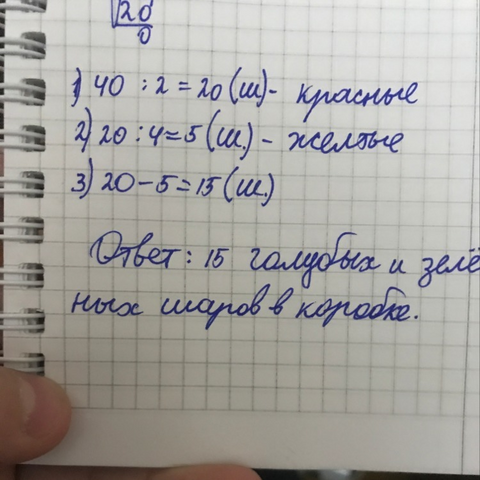 20
0
1) 40 : 2 = 20 (ш) - красные
2) 20 : 4 = 5 (ш.) - желтые
3) 20 - 5 = 15 (ш.)
Ответ: 15 голубых и зелё
ных шаров в коробке.